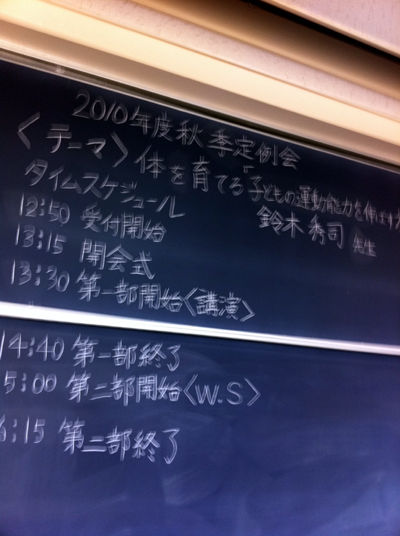 2010年度秋季定例会
〈テーマ〉体を育てる 子どもの運動能力を伸ばす
タイムスケジュール
鈴木秀司 先生
12:50 受付開始
13:15 開会式
13:30 第一部開始〈講演〉
14:40 第一部終了
5:00 第二部開始〈W.S〉
6:15 第二部終了